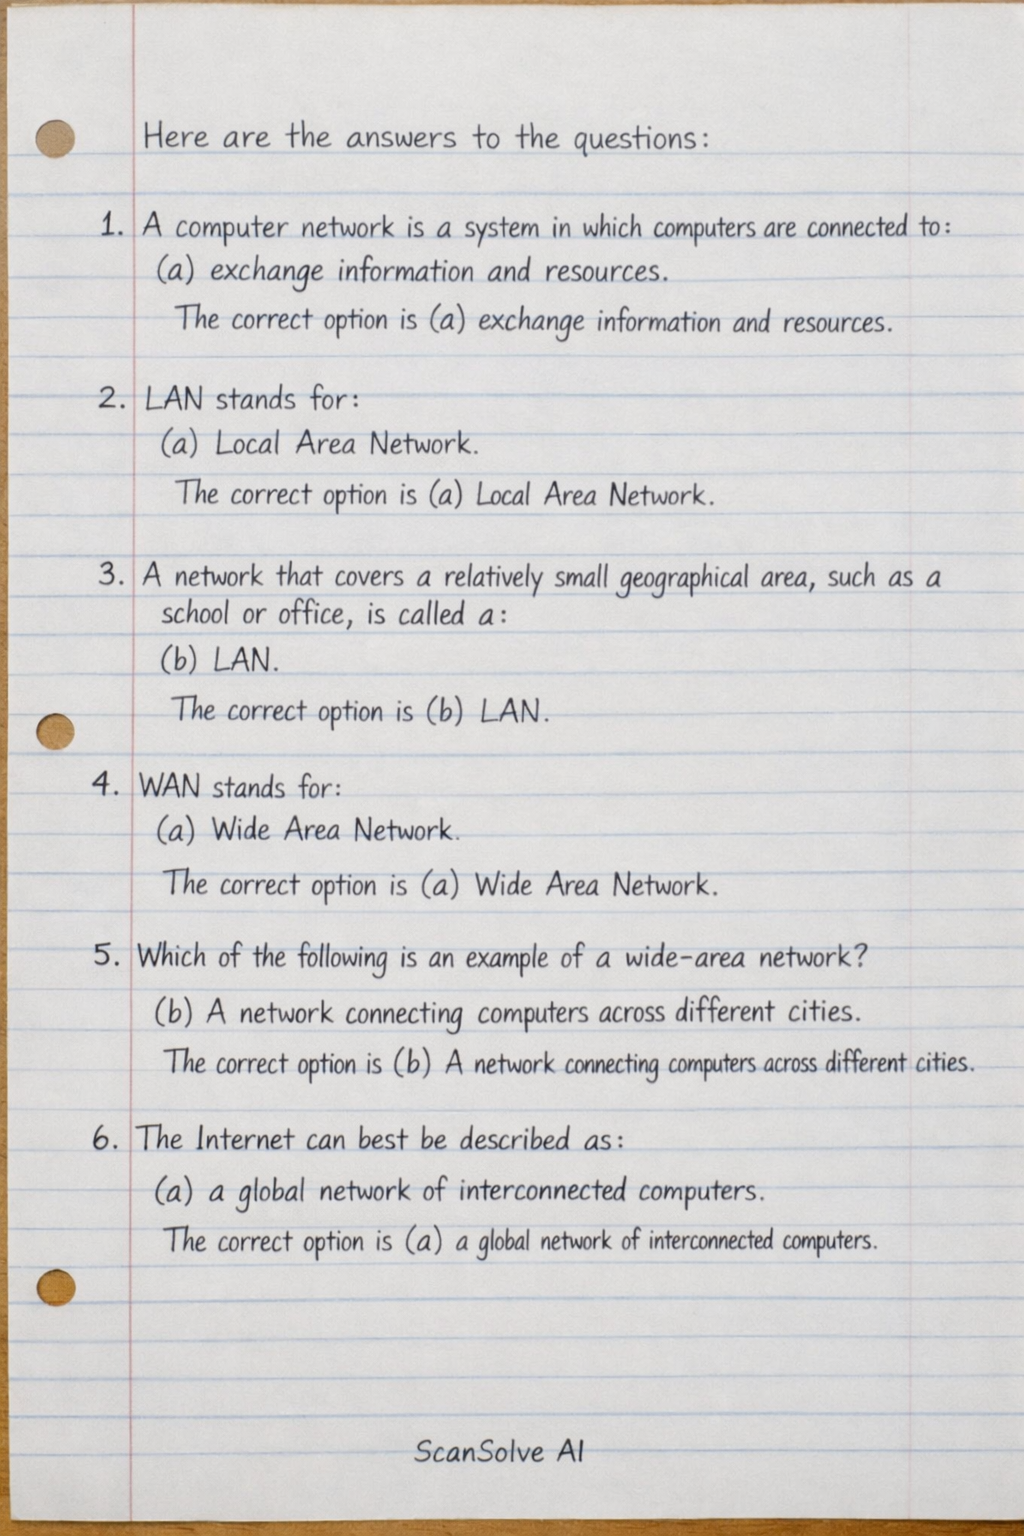 Here are the answers to the questions:
1. A computer network is a system in which computers are connected to:
(a) exchange information and resources.
The correct option is (a) exchange information and resources.
2. LAN stands for:
(a) Local Area Network.
The correct option is (a) Local Area Network.
3. A network that covers a relatively small geographical area, such as a
school or office, is called a:
(b) LAN.
The correct option is (b) LAN.
4. WAN stands for:
(a) Wide Area Network.
The correct option is (a) Wide Area Network.
5. Which of the following is an example of a wide-area network?
(b) A network connecting computers across different cities.
The correct option is (b) A network connecting computers across different cities.
6. The Internet can best be described as:
(a) a global network of interconnected computers.
The correct option is (a) a global network of interconnected computers.
ScanSolve AI